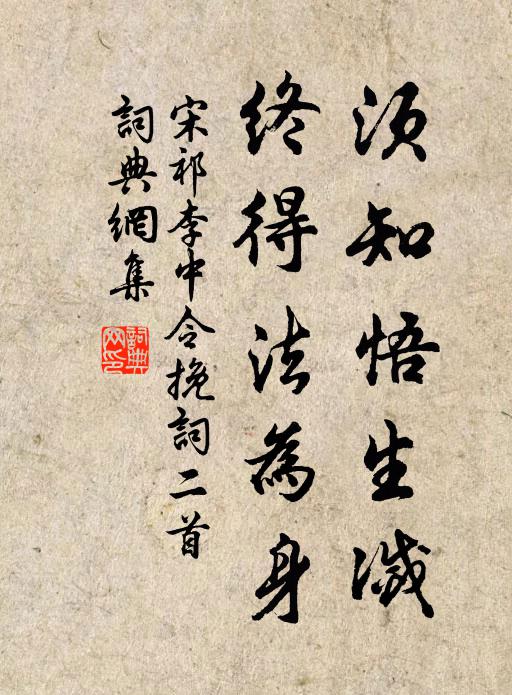 須知悟生滅
終得法為身
宋祁李中令挽詞二首
詞典網集
詞典網印